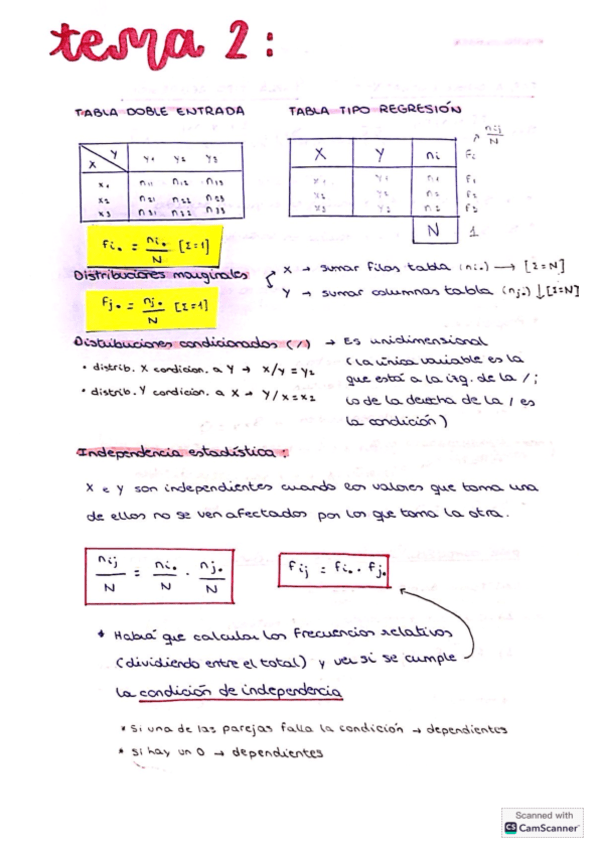 tema 2:
TABLA DOBLE ENTRADA
TABLA TIPO REGRESIÓN
nij/N
X Y y1 y2 y3
x1 n11 n12 n13
x2 n21 n22 n23
x3 n31 n32 n33
X Y ni Fi
x1 y1 n1 F1
x2 y2 n2 F2
x3 n2 F3
N 1
Fi. = ni./N [Σ=1]
Distribuciones marginales
X → sumar filas tabla (ni.) → [Σ=N]
Y → sumar columnas tabla (nj.) ↓ [Σ=N]
Fj. = nj./N [Σ=1]
Distribuciones condicionados (/) → Es unidimensional
(La única variable es la
que está a la izq. de la /;
lo de la derecha de la / es
la condición)
• distrib. X condicion. a Y → x/y=y2
• distrib. Y condicion. a X → Y/x=x2
Independencia estadística:
X e Y son independientes cuando los valores que toma una
de ellos no se ven afectados por los que toma la otra.
nij/N = ni./N · nj./N
Fij = Fi. · Fj.
* Habrá que calcular los Frecuencios relativos
(dividiendo entre el total) y ver si se cumple
la condición de independencia
* Si una de las parejas falla la condición → dependientes
* Si hay un 0 → dependientes
Scanned with
CS CamScanner